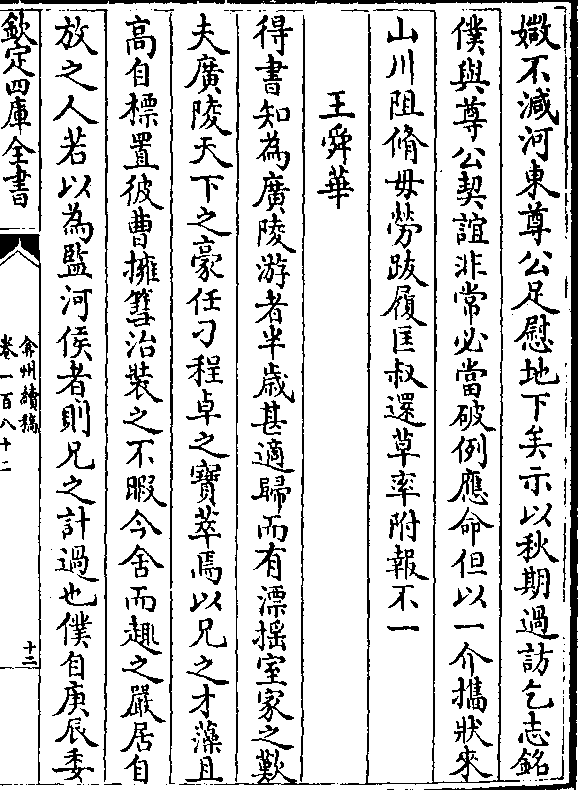 媺不減河東尊公足慰地下矣示以秋期過訪乞志銘
僕與尊公契誼非常必當破例應命但以一介攜狀來
山川阻脩毋勞跋履匡叔還草率附報不一
王舜華
得書知為廣陵游者半歲甚適歸而有漂搖室家之歎
夫廣陵天下之豪任刁程卓之寶萃焉以兄之才藻且
高自標置彼曹擁篲治裝之不暇今舍而趣之嚴居自
放之人若以為監河侯者則兄之計過也僕自庚辰委
欽定四庫全書
弇州續稿
卷一百八十二
十二